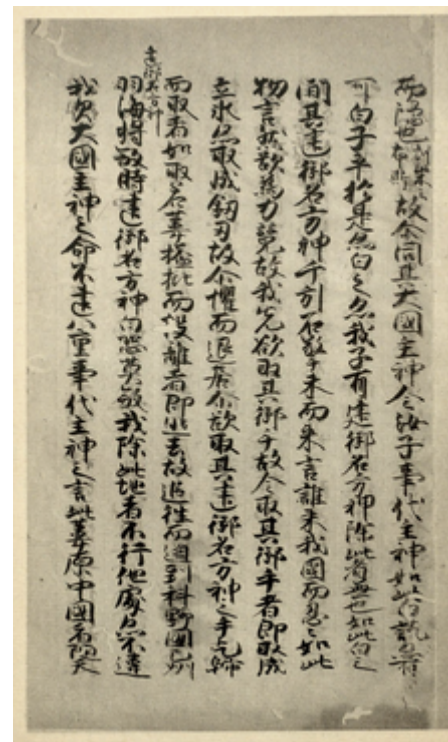 而隠也故尓問其大國主神今汝子事代主神如此白訖
可白子乎於是亦白之亦我子有建御名方神除此者無也如此白之
間其建御名方神千引石擎手末而来言誰来我國而忍々如此
物言然欲為力競故我先欲取其御手故令取其御手者即取成
立氷亦取成釼刃故尓懼而退居尓欲取其建御名方神之手乞歸
而取者如取若葦搤批而投離者即逃去故追往而迫到科野國之州
建御名方神
羽海将殺時建御名方神白恐莫殺我除此地者不行他處亦不違
我父大國主神之命不違八重事代主神之言此葦原中國者随天